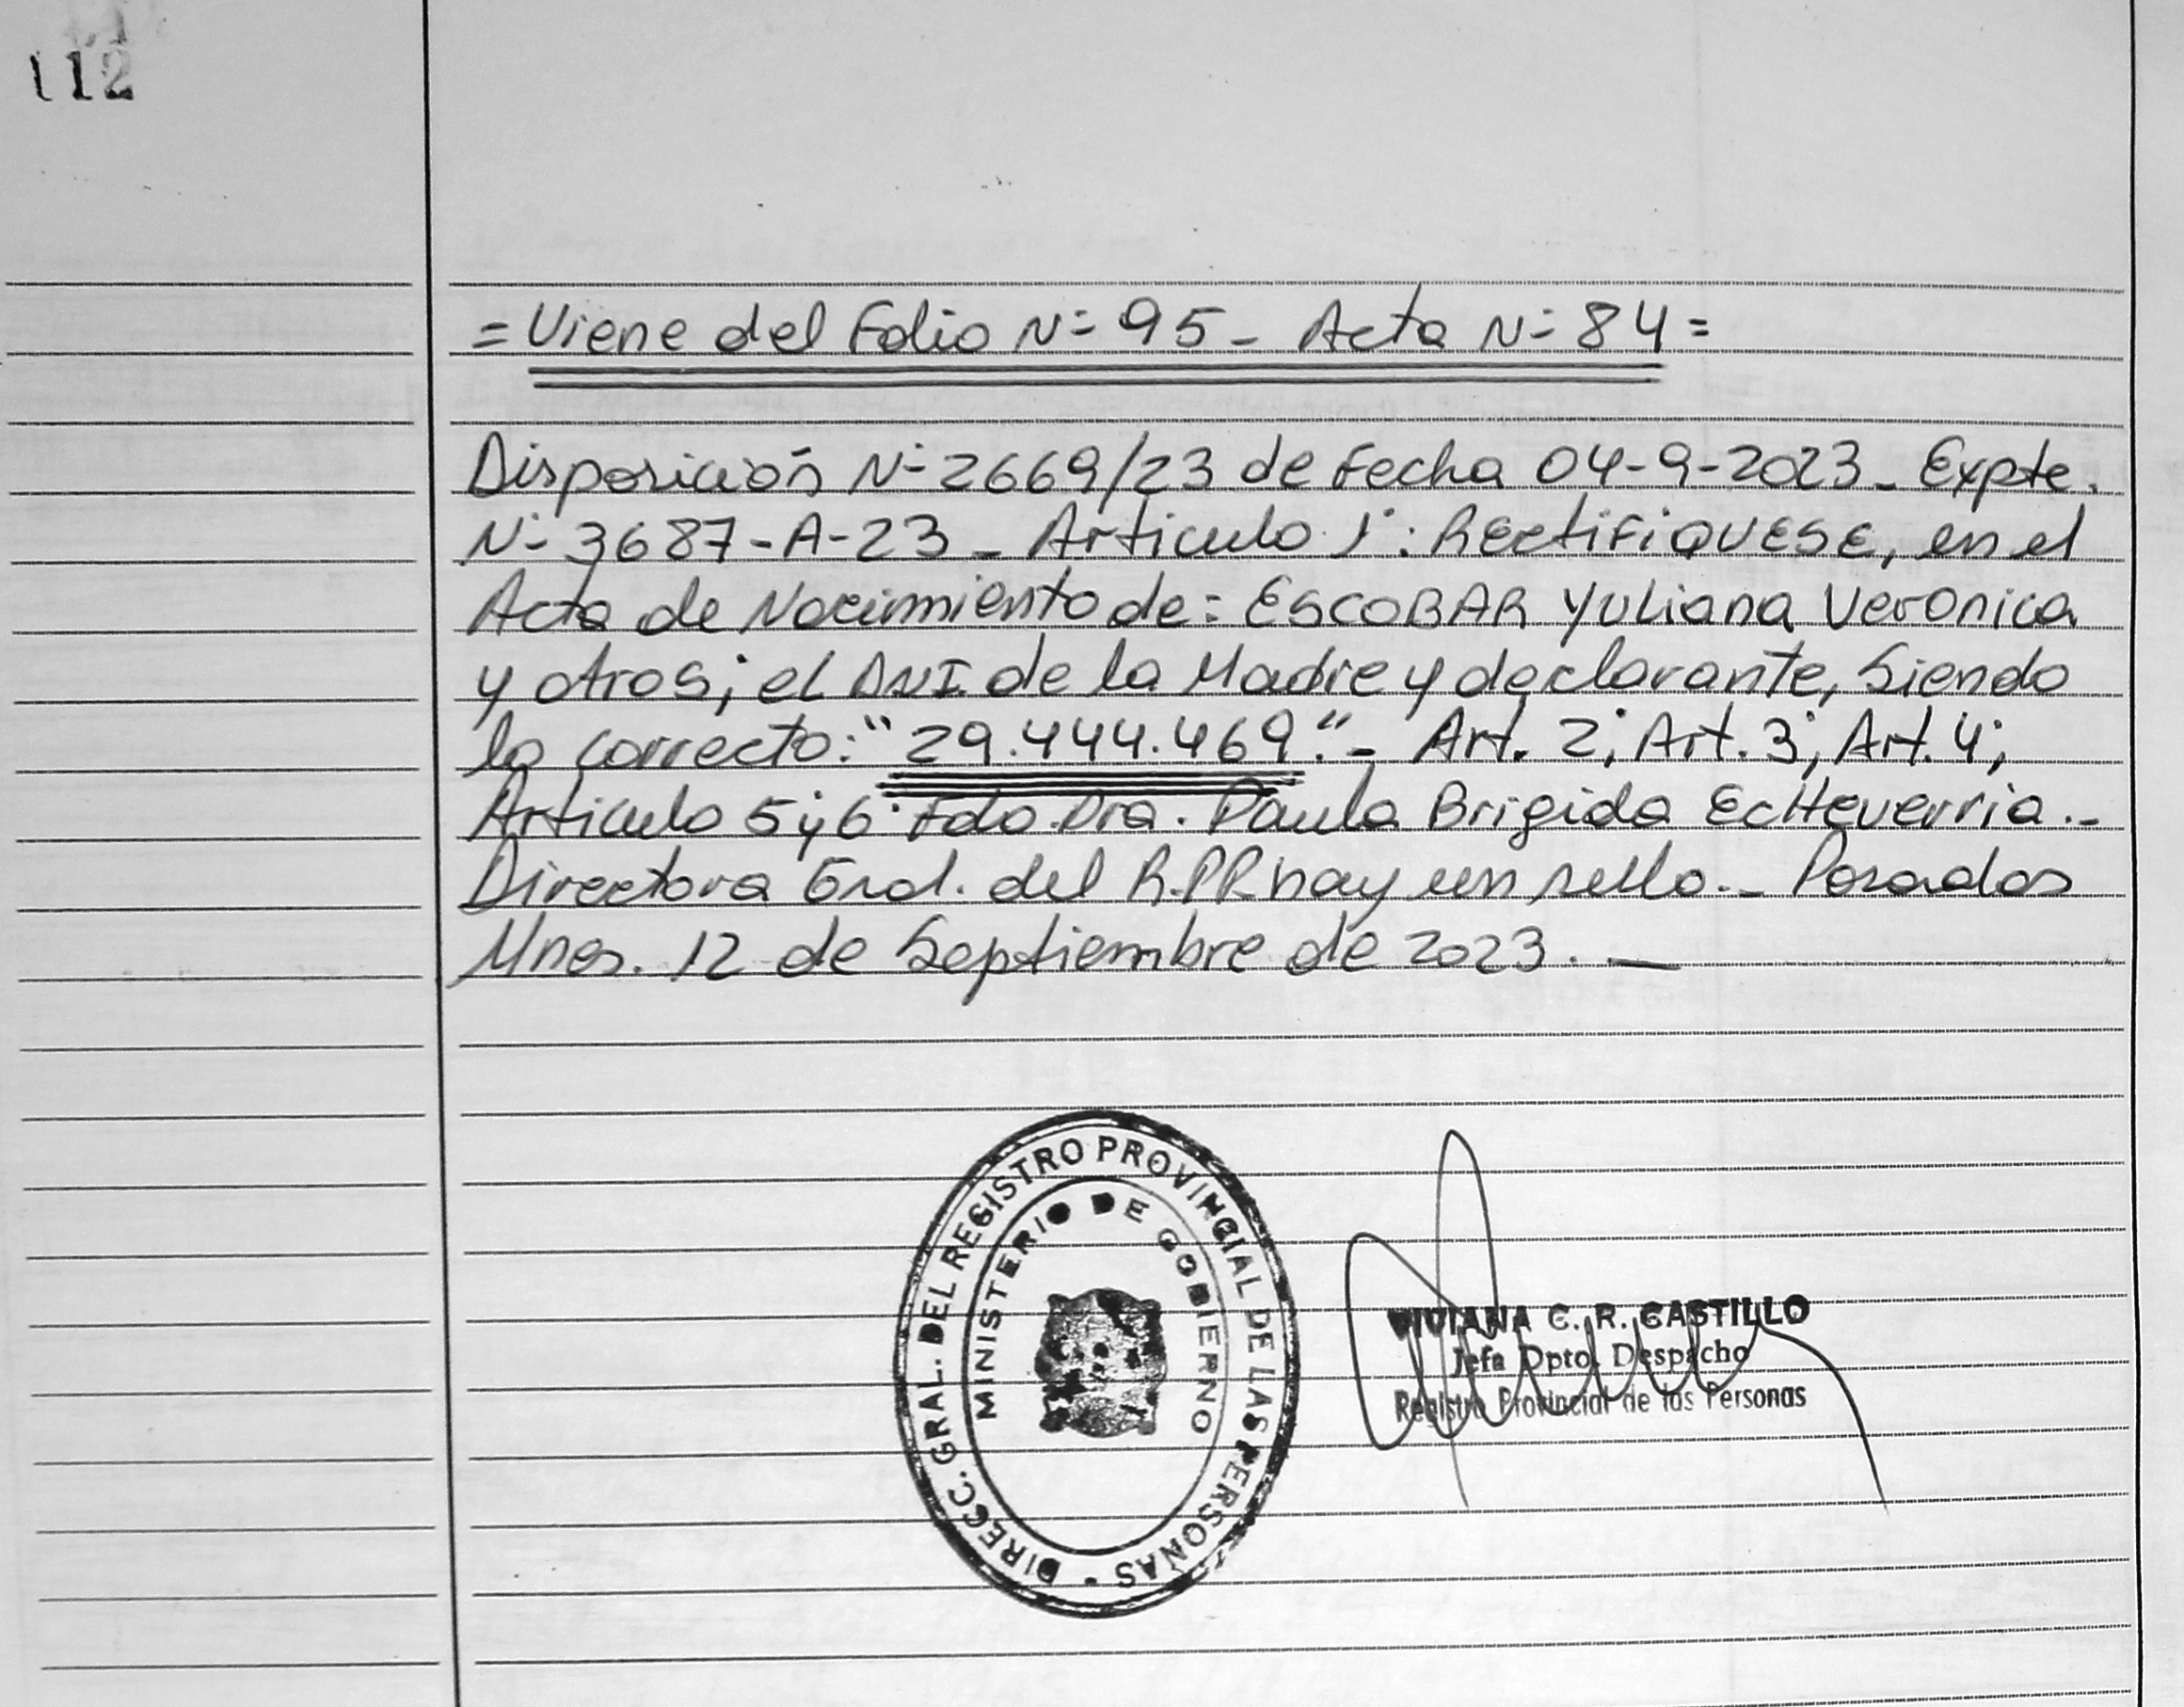 112
= Viene del Folio N° 95 - Acta N° 84 =
Disposición N° 2669/23 de Fecha 04-9-2023 - Expte.
N° 3687-A-23 - Articulo 1°: RECTIFIQUESE, en el
Acta de Nacimiento de: ESCOBAR Yuliana Veronica
y otros; el DNI de la Madre y declarante, Siendo
lo correcto: "29.444.469".- Art. 2°; Art. 3°; Art. 4°;
Articulo 5° y 6° Fdo Dra. Paula Brigida Echeverria.-
Directora Gral. del R.P.P. hay un sello.- Posadas
Mnes. 12 de Septiembre de 2023. —
DIRECC. GRAL. DEL REGISTRO PROVINCIAL DE LAS PERSONAS -
MINISTERIO DE GOBIERNO
VIVIANA C. R. CASTILLO
Jefa Dpto. Despacho
Registro Provincial de las Personas